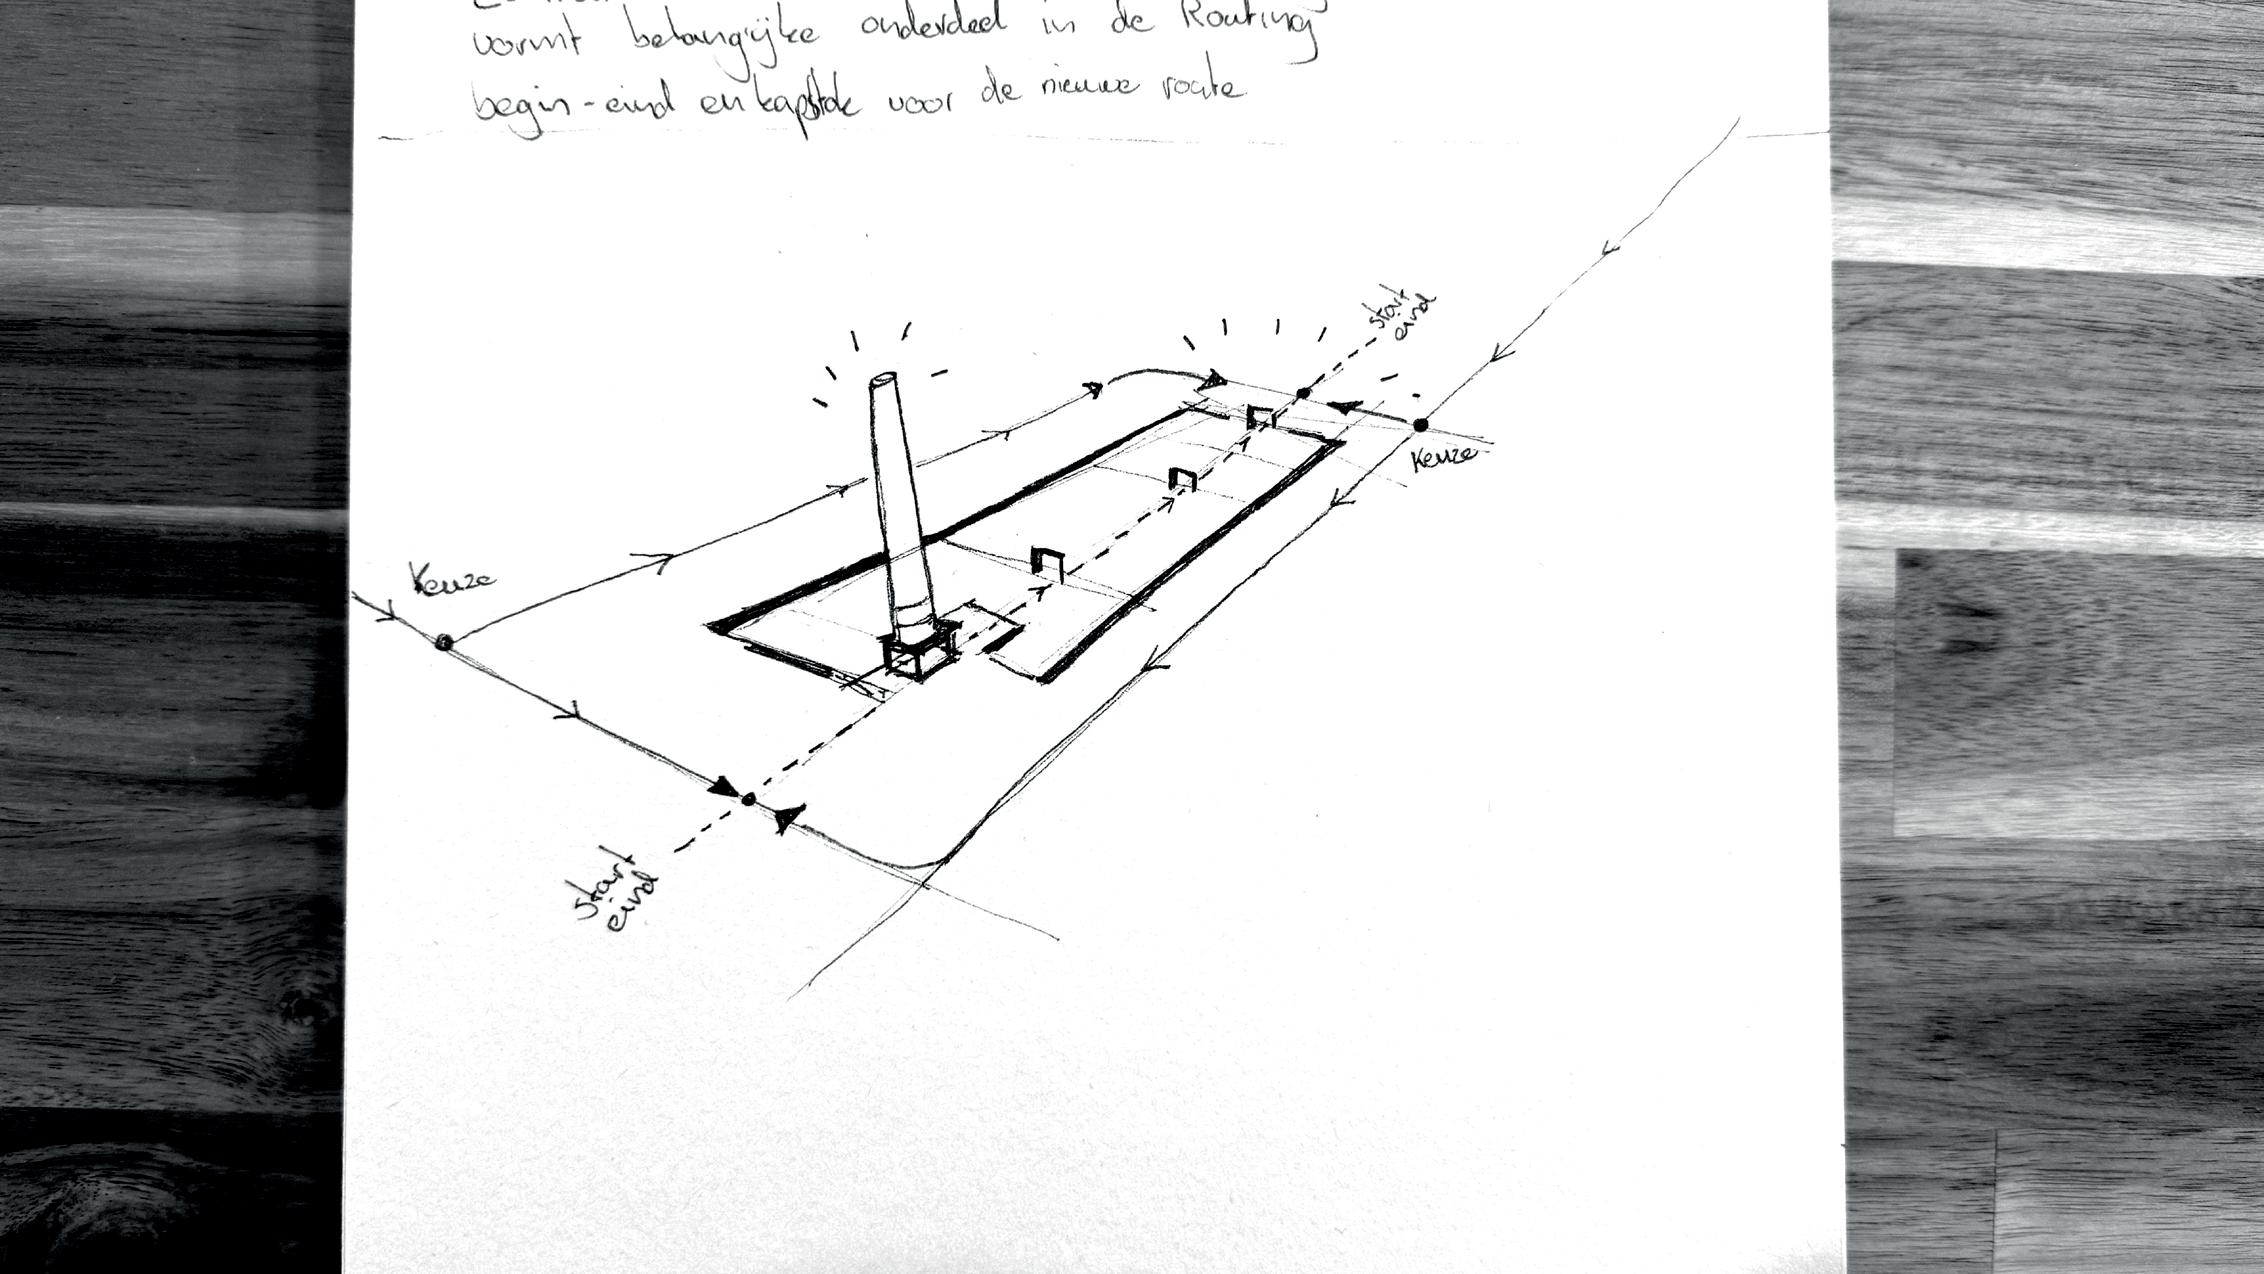 vormt belangrijke onderdeel in de Routing
begin-eind en kapstok voor de nieuwe route
start
eind
Keuze
Keuze
start
eind